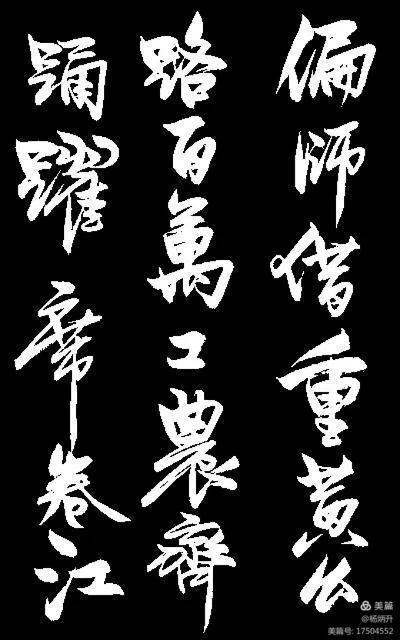 偏师借重黄公
路百萬工農齊
踊躍席卷江
美篇
@杨炳升
美篇号: 17504552